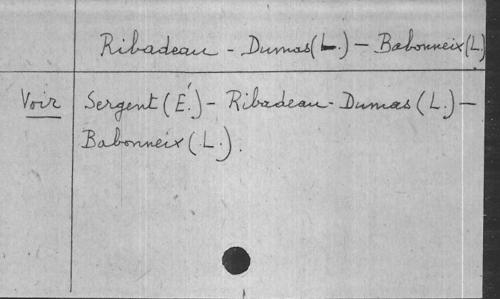 Ribadeau - Dumas (L.) — Babonneix (L.)
Voir Sergent (É.) - Ribadeau-Dumas (L.) —
Babonneix (L.).